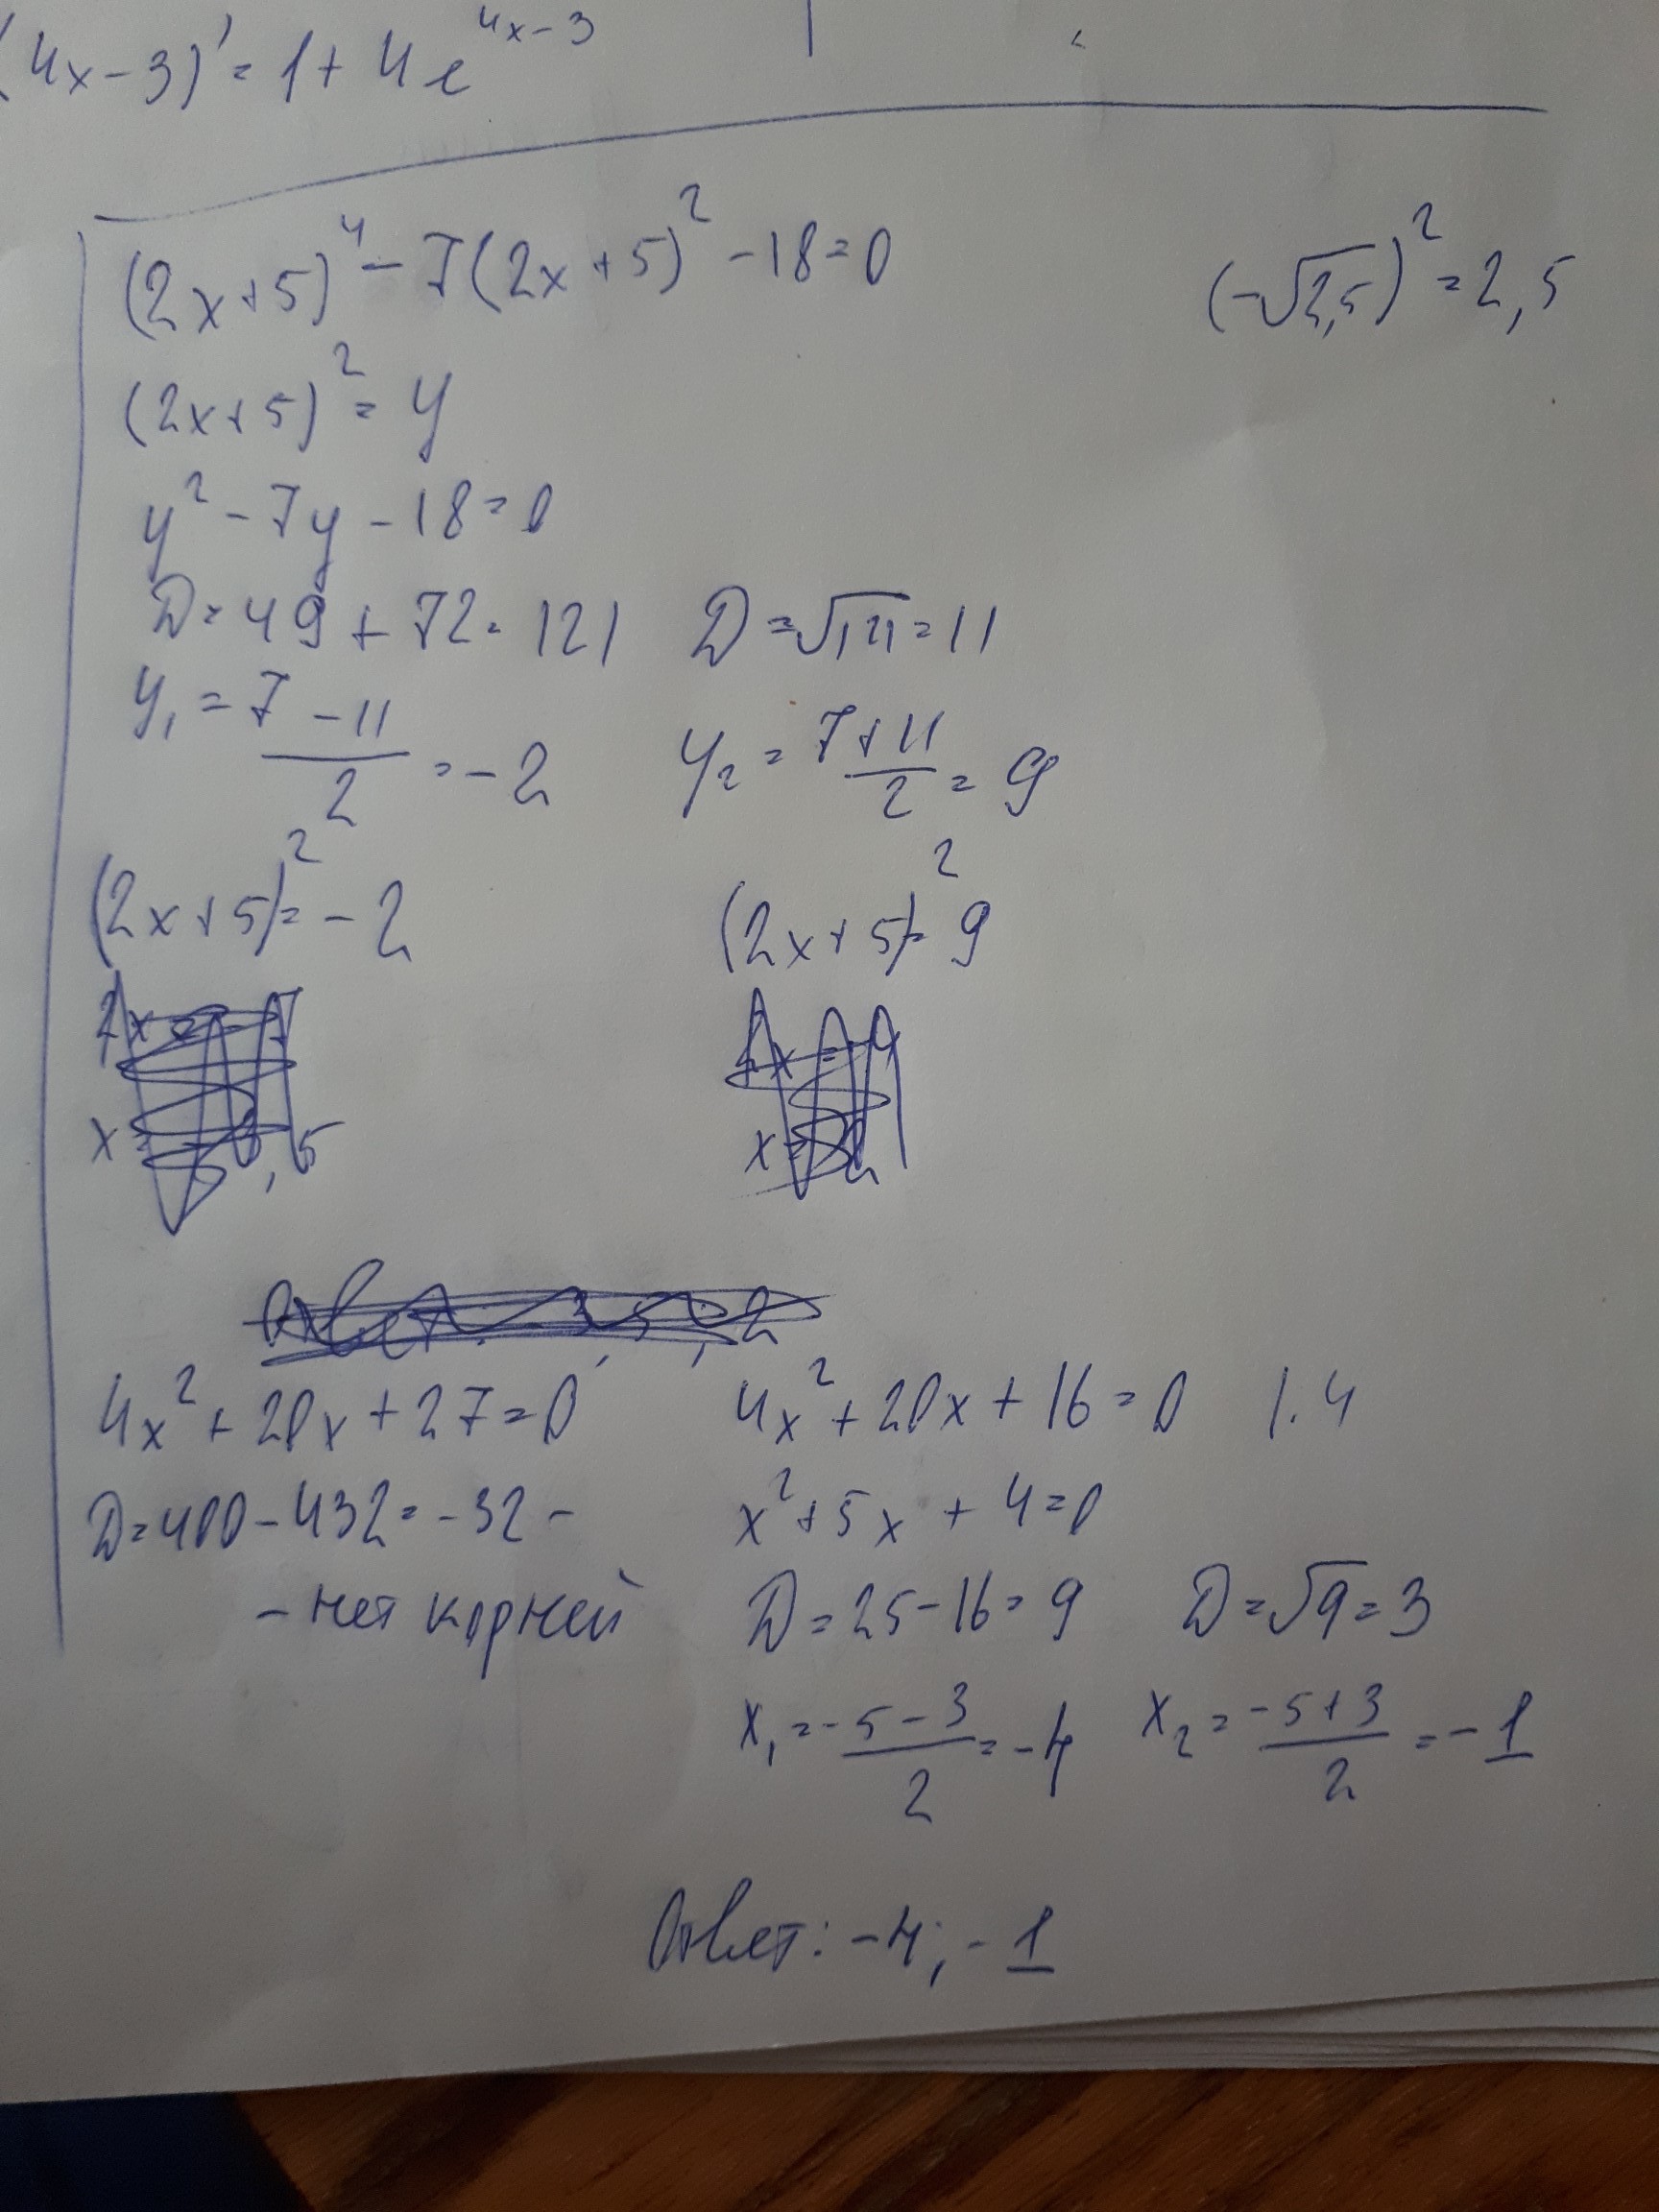 (4x-3)' = 1 + 4e^{4x-3}
(2x+5)⁴ - 7(2x+5)² - 18 = 0
(-√2,5)² = 2,5
(2x+5)² = y
y² - 7y - 18 = 0
D = 49 + 72 = 121 D = √121 = 11
y₁ = (7-11)/2 = -2 y₂ = (7+11)/2 = 9
(2x+5)² = -2 (2x+5)² = 9
4x² + 20x + 27 = 0 4x² + 20x + 16 = 0 | : 4
D = 400 - 432 = -32 - x² + 5x + 4 = 0
- нет корней D = 25 - 16 = 9 D = √9 = 3
x₁ = (-5-3)/2 = -4 x₂ = (-5+3)/2 = -1
Ответ: -4; -1